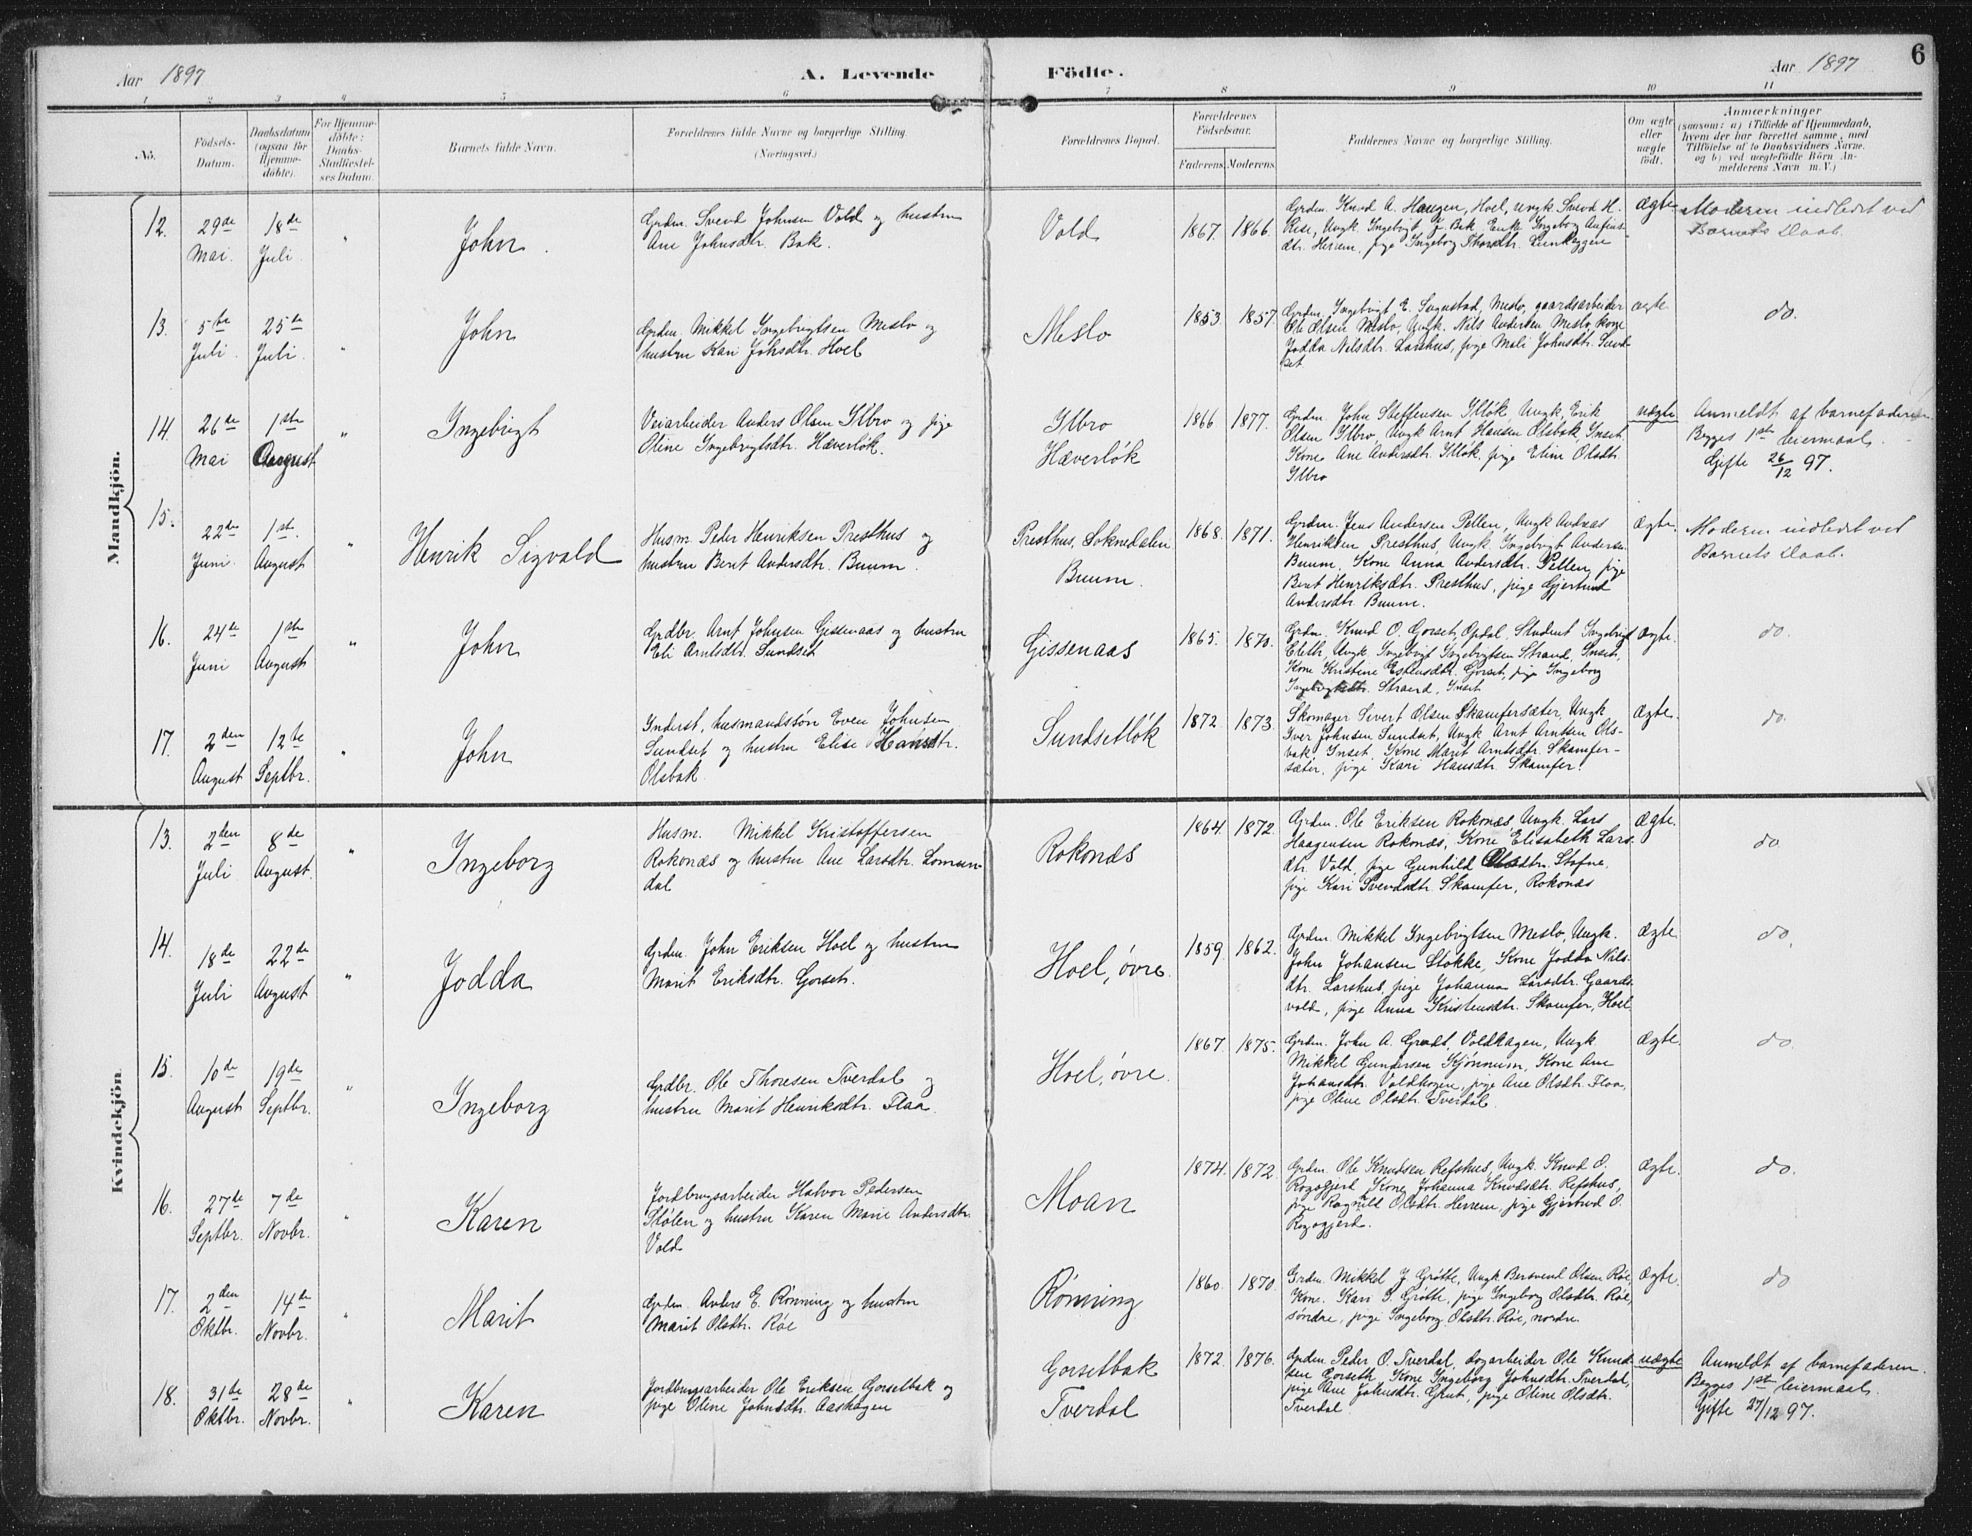 6
Aar 1897
A. Levende Födte.
Aar 1897
1 2 3 4 5 6 7 8 9 10 11
No.
Födsels-
Datum.
Daabsdatum
(ogsaa for
Hjemme-
døbte).
For Hjemme-
döbte:
Daabs-
Stadfæstel-
ses Datum.
Barnets fulde Navn.
Forældrenes fulde Navne og borgerlige Stilling.
(Næringsvei.)
Forældrenes Bopæl.
Forældrenes
Födselsaar.
Faderens. Moderens.
Faddernes Navne og borgerlige Stilling.
Om ægte
eller
uægte
födt.
Anmærkninger
(saasom: a) i Tilfælde af Hjemmedaab,
hvem der har forrettet samme, med
Tilföielse af to Daabsvidners Navne,
og b) ved uægtefödte Börn An-
melderens Navn m. V.)
Mandkjön.
12. 29de Mai. 18de Juli. " John.
Grdm. Svend Johnsen Vold og hustru
Ane Johnsdtr. Bak.
Vold
1867. 1866.
Grdm. Knud A. Haugen, Hoel, Ungk. Svend H.
Rise, Ungk. Ingebrigt J. Bak, Enke Ingeborg
dtr. Herrem, pige Ingeborg
ægte
Moderen indledt ved
Barnets Daab.
13. 5te Juli. 25de Juli. " John
Grdm. Mikkel Ingebrigtsen Meslo og
hustru Kari Johsdtr. Hoel
Meslo
1853 1857.
Grdm. Ingebrigt E. Meslo, gaardsarbeider
Ole Olsen Meslo, Ungk. Nils Andersen Meslo, kone
Jodda Nilsdtr. Larshus, pige Mali Johnsdtr. Sund-
set
ægte
do.
14. 26de Mai 1ste August " Ingebrigt
Veiarbeider Anders Olsen Ilbro og pige
Oline Ingebrigtsdtr. Hæverløk.
Ilbro
Hæverløk
1866 1877.
Grdm. John Steffensen Illøk, Ungk. Erik
Olsen Ilbro, Ungk Arnt Hansen Olsbak, Inset,
Kone Ane Andersdtr. Illøk, pige Eline Olsdtr.
Ilbro
uægte
Anmeldt af barnefaderen
Begges 1ste leiermaal.
Gifte 26/12 97.
15. 22de Juni. 1ste August " Henrik Sigvald
Husm. Peder Henriksen Presthus og
hustru Berit Andersdtr. Buum.
Presthus, Soknedalen
Buum.
1868. 1871.
Grdm. Jens Andersen Pellen, Ungk Andreas
Henriksen Presthus, Ungk. Ingebrigt Andersen
Buum, Kone Anna Andersdtr. Pellen, pige
Berit Henriksdtr. Presthus, pige Gjertrud
Andersdtr. Buum.
Ægte.
Moderen indledt ved
Barnets Daab.
16. 24de Juni 1ste August " John
Grdbr. Arnt Johnsen Gissenaas og hustru
Eli Arntsdtr. Sundset
Gissenaas
1865. 1870.
Grdm. Knud O. Gorset, Opdal, Student Ingebrigt
Ungk. Ingebrigt Ingebrigtsen Strand, Inset,
Kone Kristine Estensdtr. Gorset, pige Ingeborg
Ingebrigtsdtr. Strand, Inset
Ægte.
do.
17. 2den August 12te Septbr. " John
Inderst, husmandssøn Even Johnsen
Sundset og hustru Elise Hansdtr.
Olsbak.
Sundsetløk
1872 1873.
Skomager Sivert Olsen Skamfersæter, Ungk
Iver Johnsen Sundset, Ungk Arnt Arntsen Ols-
bak, Inset, Kone Marit Arntsdtr. Skamfer-
sæter, pige Kari Hansdtr. Skamfer.
Ægte.
do.
Kvindekjön
13. 2den Juli 8de August. " Ingeborg
Husm. Mikkel Kristoffersen
Rokonæs og hustru Ane Larsdtr. Lomun-
dal
Rokonæs
1864. 1872.
Grdm. Ole Eriksen Rokonæs, Ungk. Lars
Haagensen Rokonæs, Kone Elisabeth Lars-
dtr. Vold, pige Gunhild Olsdtr. Stofne,
pige Kari Svendsdtr. Skamfer, Rokonæs
Ægte.
do
14. 18de Juli 22de August " Jodda
Grdm. John Eriksen Hoel og hustru
Marit Eriksdtr. Gorset.
Hoel, øvre.
1859. 1862.
Grdm. Mikkel Ingebrigtsen Meslo, Ungk.
John Johansen Støkke, Kone Jodda Nils-
dtr. Larshus, pige Johanna Larsdtr. Gaards-
vold, pige Anna Kristensdtr. Skamfer, Hoel
Ægte
do.
15. 10de August 19de Septbr. " Ingeborg
Grdbr. Ole Thoresen Tverdal og
hustru Marit Henriksdtr. Flaa.
Hoel, øvre.
1867. 1875.
Grdm. John A. Voldhagen, Ungk
Mikkel Gundersen Kjønnum, Kone Ane
Johansdtr. Voldhagen, pige Ane Olsdtr. Flaa,
pige Oline Olsdtr. Tverdal.
Ægte.
do.
16. 27de Septbr. 7de Novbr. " Karen
Jordbrugsarbeider Halvor Pedersen
Stølen og hustru Karen Marie Andersdtr.
Vold
Moan
1874. 1872.
Grdm. Ole Knudsen Refshus, Ungk. Knud O.
Rogogjerd, Kone Johanna Knudsdtr. Refshus,
pige Ragnild Olsdtr. Herrem, pige Gjertrud O.
Rogogjerd.
Ægte.
do.
17. 2den Oktbr. 14de Novbr. " Marit
Grdm. Anders E. Rønning og hustru
Marit Olsdtr. Røe
Rønning
1860. 1870.
Grdm. Mikkel J. Grøtte, Ungk Bersvend Olsen Røe,
Kone. Kari J. Grøtte, pige Ingeborg Olsdtr. Røe,
søndre, pige Ingeborg. Olsdtr. Røe, nordre.
Ægte.
do
18. 31te Oktbr. 28de Novbr. " Karen
Jordbrugsarbeider Ole Eriksen Gorsetbak og
pige Oline Johnsdtr. Aashagen
Gorsetbak
Tverdal
1872. 1876.
Grdm. Peder O. Tverdal, dagarbeider Ole Knud-
sen Gorseth, Kone Ingeborg Johnsdtr. Tverdal,
pige Ane Johnsdtr. pige Oline Olsdtr.
Tverdal.
uægte
Anmeldt af barnefaderen.
Begges 1ste leiermaal.
Gifte 27/12 97.